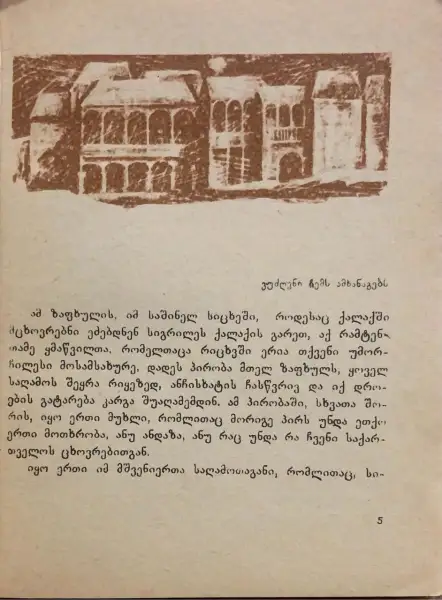 ვუძღვნი ჩემს ამხანაგებს
ამ ზაფხულის, იმ საშინელ სიცხეში, როდესაც ქალაქში
მცხოვრებნი ეძებდნენ სიგრილეს ქალაქის გარეთ, აქ რამტენ-
იამე ყმაწვილთა, რომელთაცა რიცხვში ერია თქვენი უმორ-
ჩილესი მოსამსახურე, დადეს პირობა მთელ ზაფხულს, ყოველ
საღამოს შეყრა რიყეზედ, ანჩისხატის ჩასწვრივ და იქ დრო-
ების გატარება კარგა შუაღამემდინ. ამ პირობაში, სხვათა შო-
რის, იყო ერთი მუხლი, რომლითაც მორიგე პირს უნდა ეთქო
ერთი მოთხრობა, ანუ ანდაზა, ანუ რაც უნდა რა ჩვენი საქარ-
თველოს ცხოვრებითგან.
იყო ერთი იმ მშვენიერთა საღამოთაგანი, რომლითაც, სი-
5